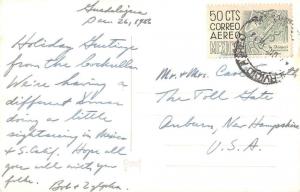 Guadalajara
Dec 26, 1952
Holiday Greetings
from the
We're having a
different Xmas
doing as little
sightseeing in Mexico
& S. Calif. Hope all
you all with you
folks.
Bob &
50 CTS
CORREO
AEREO
MEXICO
Mr. & Mrs.
The Toll Gate
Auburn, New Hampshire
U. S. A.